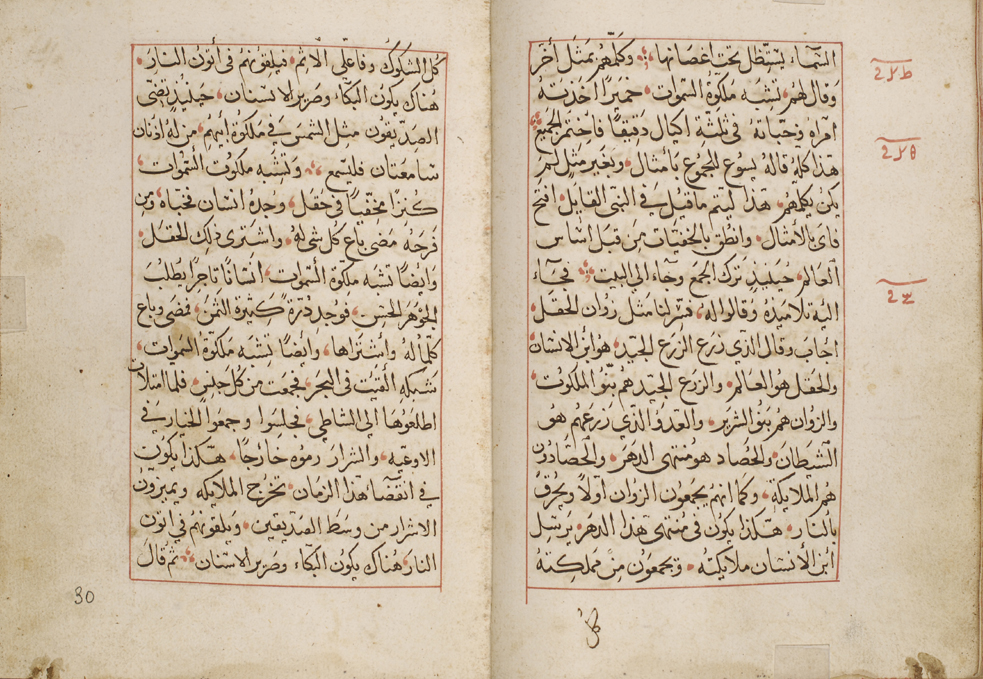 السماء يستظل تحت اغصانها وكلمهم بمثل أخر
وقال لهم نشبه ملكوة السموات خميرًا اخذته
امراة وخبأتهُ في ثلثة اكيال دقيقًا فاختمر الجميع
هذا كله قاله يسوع للجموع بامثال وبغير مثل لم
يكن يكلمهم هذا ليتم ما قيل في النبي القايل افتح
فاى بالامثال وانطق بالخفيات من قبل اساس
العالم حينيذٍ ترك الجمع وجاء الى البيت فجاء
اليه تلاميذه وقالوا له فسر لنا مثل زوان الحقل
اجاب وقال الذي زرع الزرع الجيد هو ابن الانسان
والحقل هو العالم والزرع الجيد هم بنو الملكوت
والزوان هم بنو الشرير والعدو الذي زرعهم هو
الشطان والحصاد هو منتهى الدهر والحصادون
هم الملايكة وكما انهم يجمعون الزوان اولاً ويحرق
بالنار هكذا يكون في منتهى هذا الدهر يرسل
ابن الأنسان ملايكته ويجمعون من مملكته
كل
كل الشكوك وفاعلى الاثم فيلقونهم في أتون النار
هناك يكون البكاء وصرير الاسنان حينيذٍ يضى
الصديقون مثل الشمس في ملكوة أبيهم من له اذنان
سامعتان فليسمع وتشبه ملكوت السموات
كنزًا مخفيًا في حقل وجده انسان فخباه ومن
فرحه مضى باع كل شى له واشترى ذلك الحقل
وايضًا تشبه ملكوة السموات انسانًا تاجرًا يطلب
الجوهر الحسن فوجد درة كثيرة الثمن فمضى وباع
كلما له واشتراها وايضًا تشبه ملكوة السموات
شبكه القيت في البحر فجمعت من كل جنس فلما امتلات
اطلعوها الى الشاطي فجلسوا وجمعوا الخيار في
الاوعيه والشرار رموه خارجًا هكذا يكون
في انقضا هذا الزمان تخرج الملايكه ويميزون
الاشرار من وسط الصديقين ويلقونهم في اتون
النار هناك يكون البكاء وصرير الاسنان ثم قال
30